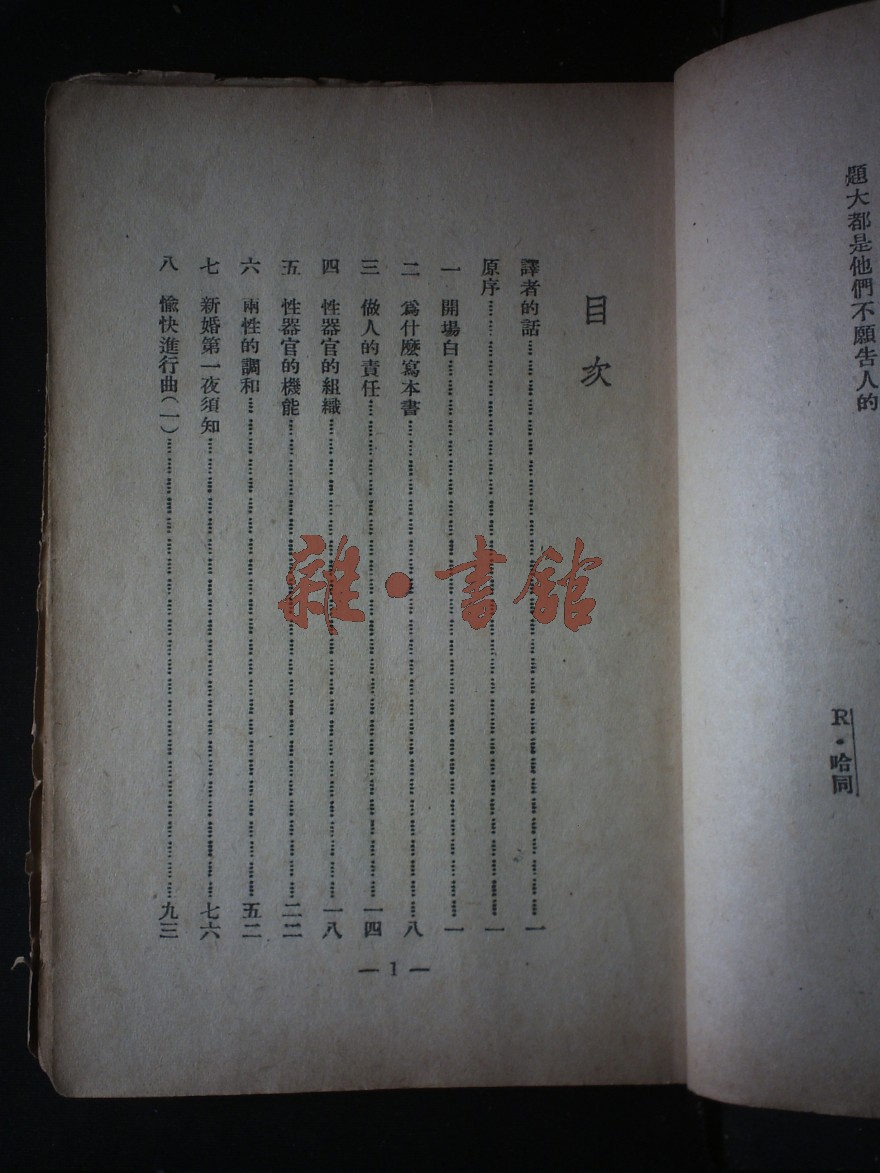 題大都是他們不願告人的
R・哈同
目次
譯者的話……一
原序……一
一 開場白……一
二 爲什麼寫本書……八
三 做人的責任……一四
四 性器官的組織……一八
五 性器官的機能……二二
六 兩性的調和……五二
七 新婚第一夜須知……七六
八 愉快進行曲(一)……九三
— 1 —
雜・書館